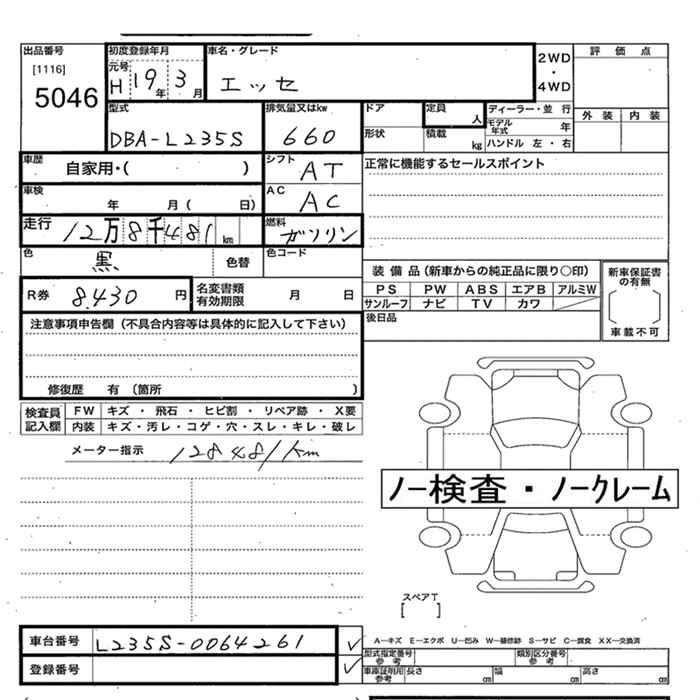 出品番号
[1116]
5046
初度登録年月
元号
H 19年 3月
車名・グレード
エッセ
2WD
・
4WD
評価点
外装 内装
型式
DBA-L235S
排気量又はkw
660
ドア
形状
定員
人
積載
kg
ディーラー・並行
モデル年式 年
ハンドル 左・右
車歴
自家用・( )
シフト
AT
正常に機能するセールスポイント
車検
年 月( 日)
AC
AC
走行
12万8千481km
燃料
ガソリン
色
黒
色替
色コード
装備品(新車からの純正品に限り○印)
PS PW ABS エアB アルミW
サンルーフ ナビ TV カワ
新車保証書の有無
[ ]
車載不可
R券
8,430円
名変書類有効期限
月 日
後日品
注意事項申告欄(不具合内容等は具体的に記入して下さい)
修復歴 有(箇所 )
検査員記入欄
FW キズ・飛石・ヒビ割・リペア跡・X要
内装 キズ・汚レ・コゲ・穴・スレ・キレ・破レ
メーター指示 128481km
ノー検査・ノークレーム
スペアT
[ ]
車台番号
L235S-0064261
登録番号
A-キズ E-エクボ U-凹み W-補修跡 S-サビ C-腐食 XX-交換済
型式指定番号
参考
類別区分番号
参考
車庫証明用
参考
長さ cm 幅 cm 高さ cm